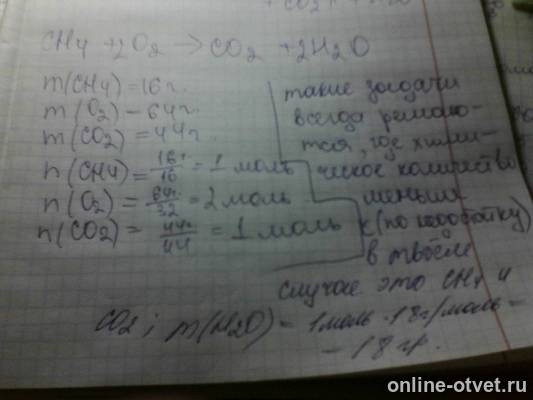 CH4 + 2O2 → CO2 + 2H2O
m(CH4) = 16 г.
m(O2) - 64 г.
m(CO2) = 44 г.
n(CH4) = 16г/16 = 1 моль
n(O2) = 64г/32 = 2 моль
n(CO2) = 44г/44 = 1 моль
такие задачи
всегда решаю-
тся, где хими-
ческое количество
меньше
(по недостатку)
в твоём
случае это CH4 и
CO2; m(H2O) = 1моль · 18г/моль =
= 18 гр.
online-otvet.ru